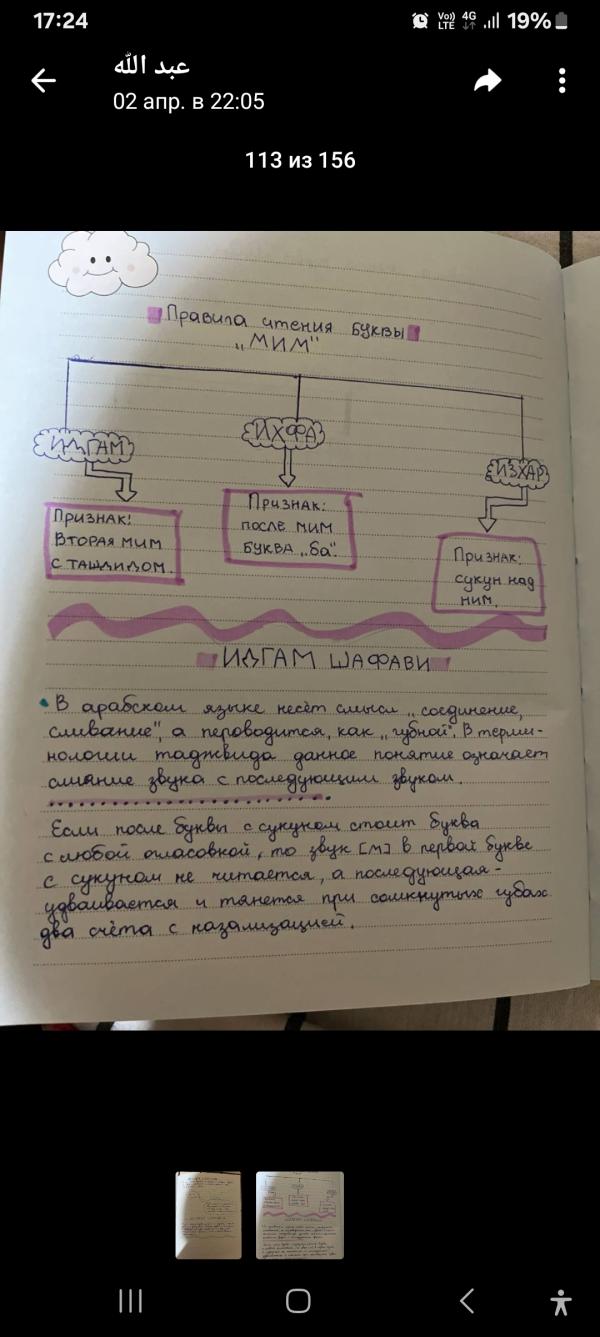 17:24
Vo)) LTE 4G 19%
عبد الله
02 апр. в 22:05
113 из 156
Правила чтения буквы
„МИМ"
ИДГАМ
ИХФА
ИЗХАР
Признак:
вторая мим
с ташдидом.
Признак:
после мим
буква „ба".
Признак:
сукун над
ним.
ИДГАМ ШАФАВИ
В арабском языке несёт смысл „соединение,
сливание", а пероводится, как „губной". В терми-
нологии таджвида данное понятие означает
слияние звука с последующим звуком.
Если после буквы с сукуном стоит буква
с любой огласовкой, то звук [м] в первой букве
с сукуном не читается, а последующая -
удваивается и тянется при сомкнутых губах
два счёта с назализацией.